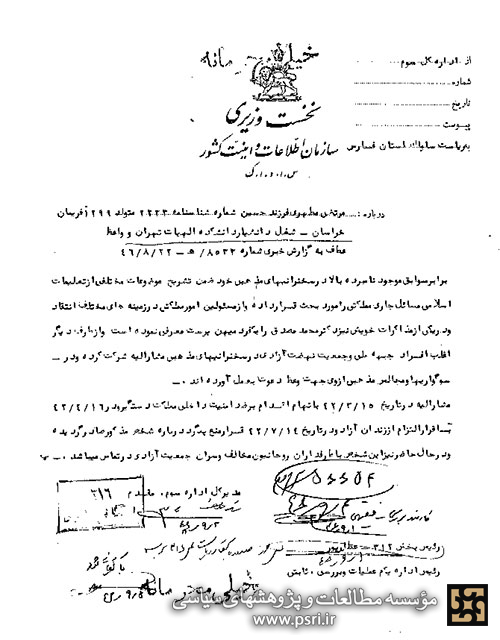 خیلی محرمانه
از اداره کل سوم
شماره
تاریخ
پیوست
نخست وزیری
سازمان اطلاعات و امنیت کشور
س.ا.و.ا.ک
بریاست ساواک استان فارس
درباره: مرتضی مطهری فرزند حسین شماره شناسنامه ۲۲۲۳ متولد ۲۹۹ فریمان
خراسان – شغل دانشیار دانشکده الهیات تهران و واعظ
عطف به گزارش خبری شماره ۸۵۳۳/ه – ۴۶/۸/۲۲
برابر سوابق موجود نامبرده بالا در سخنرانیهای مذهبی خود ضمن تشریح موضوعات مختلفی از تعلیمات
اسلامی مسائل جاری مملکتی را مورد بحث قرار داده و از مسئولین امور مملکتی در زمینه های مختلف انتقاد
و در یکی از مذاکرات خویش نیز دکتر محمد مصدق را یکفرد میهن پرست معرفی نموده است و از طرف دیگر
اغلب افراد جبهه ملی و جمعیت نهضت آزادی در سخنرانیهای مذهبی مشارالیه شرکت کرده و در –
سوگواریها و مجالس مذهبی از وی جهت وعظ دعوت بعمل آورده اند.
مشارالیه در تاریخ ۴۲/۳/۱۵ باتهام اقدام بر ضد امنیت داخلی مملکت دستگیر و در ۴۲/۴/۱۶
با قرار التزام از زندان آزاد و در تاریخ ۴۲/۷/۱۴ قرار منع پیگرد درباره شخص مذکور صادر گردیده
و در حال حاضر نیز این شخص با طرفداران روحانیون مخالف و سران جمعیت آزادی در تماس میباشد.
مدیرکل اداره سوم. مقدم
۳۱۶
رئیس بخش ۳۱۲
رئیس اداره یکم عملیات و بررسی. ثابتی
خیلی محرمانه
مؤسسه مطالعات و پژوهشهای سیاسی
www.psri.ir